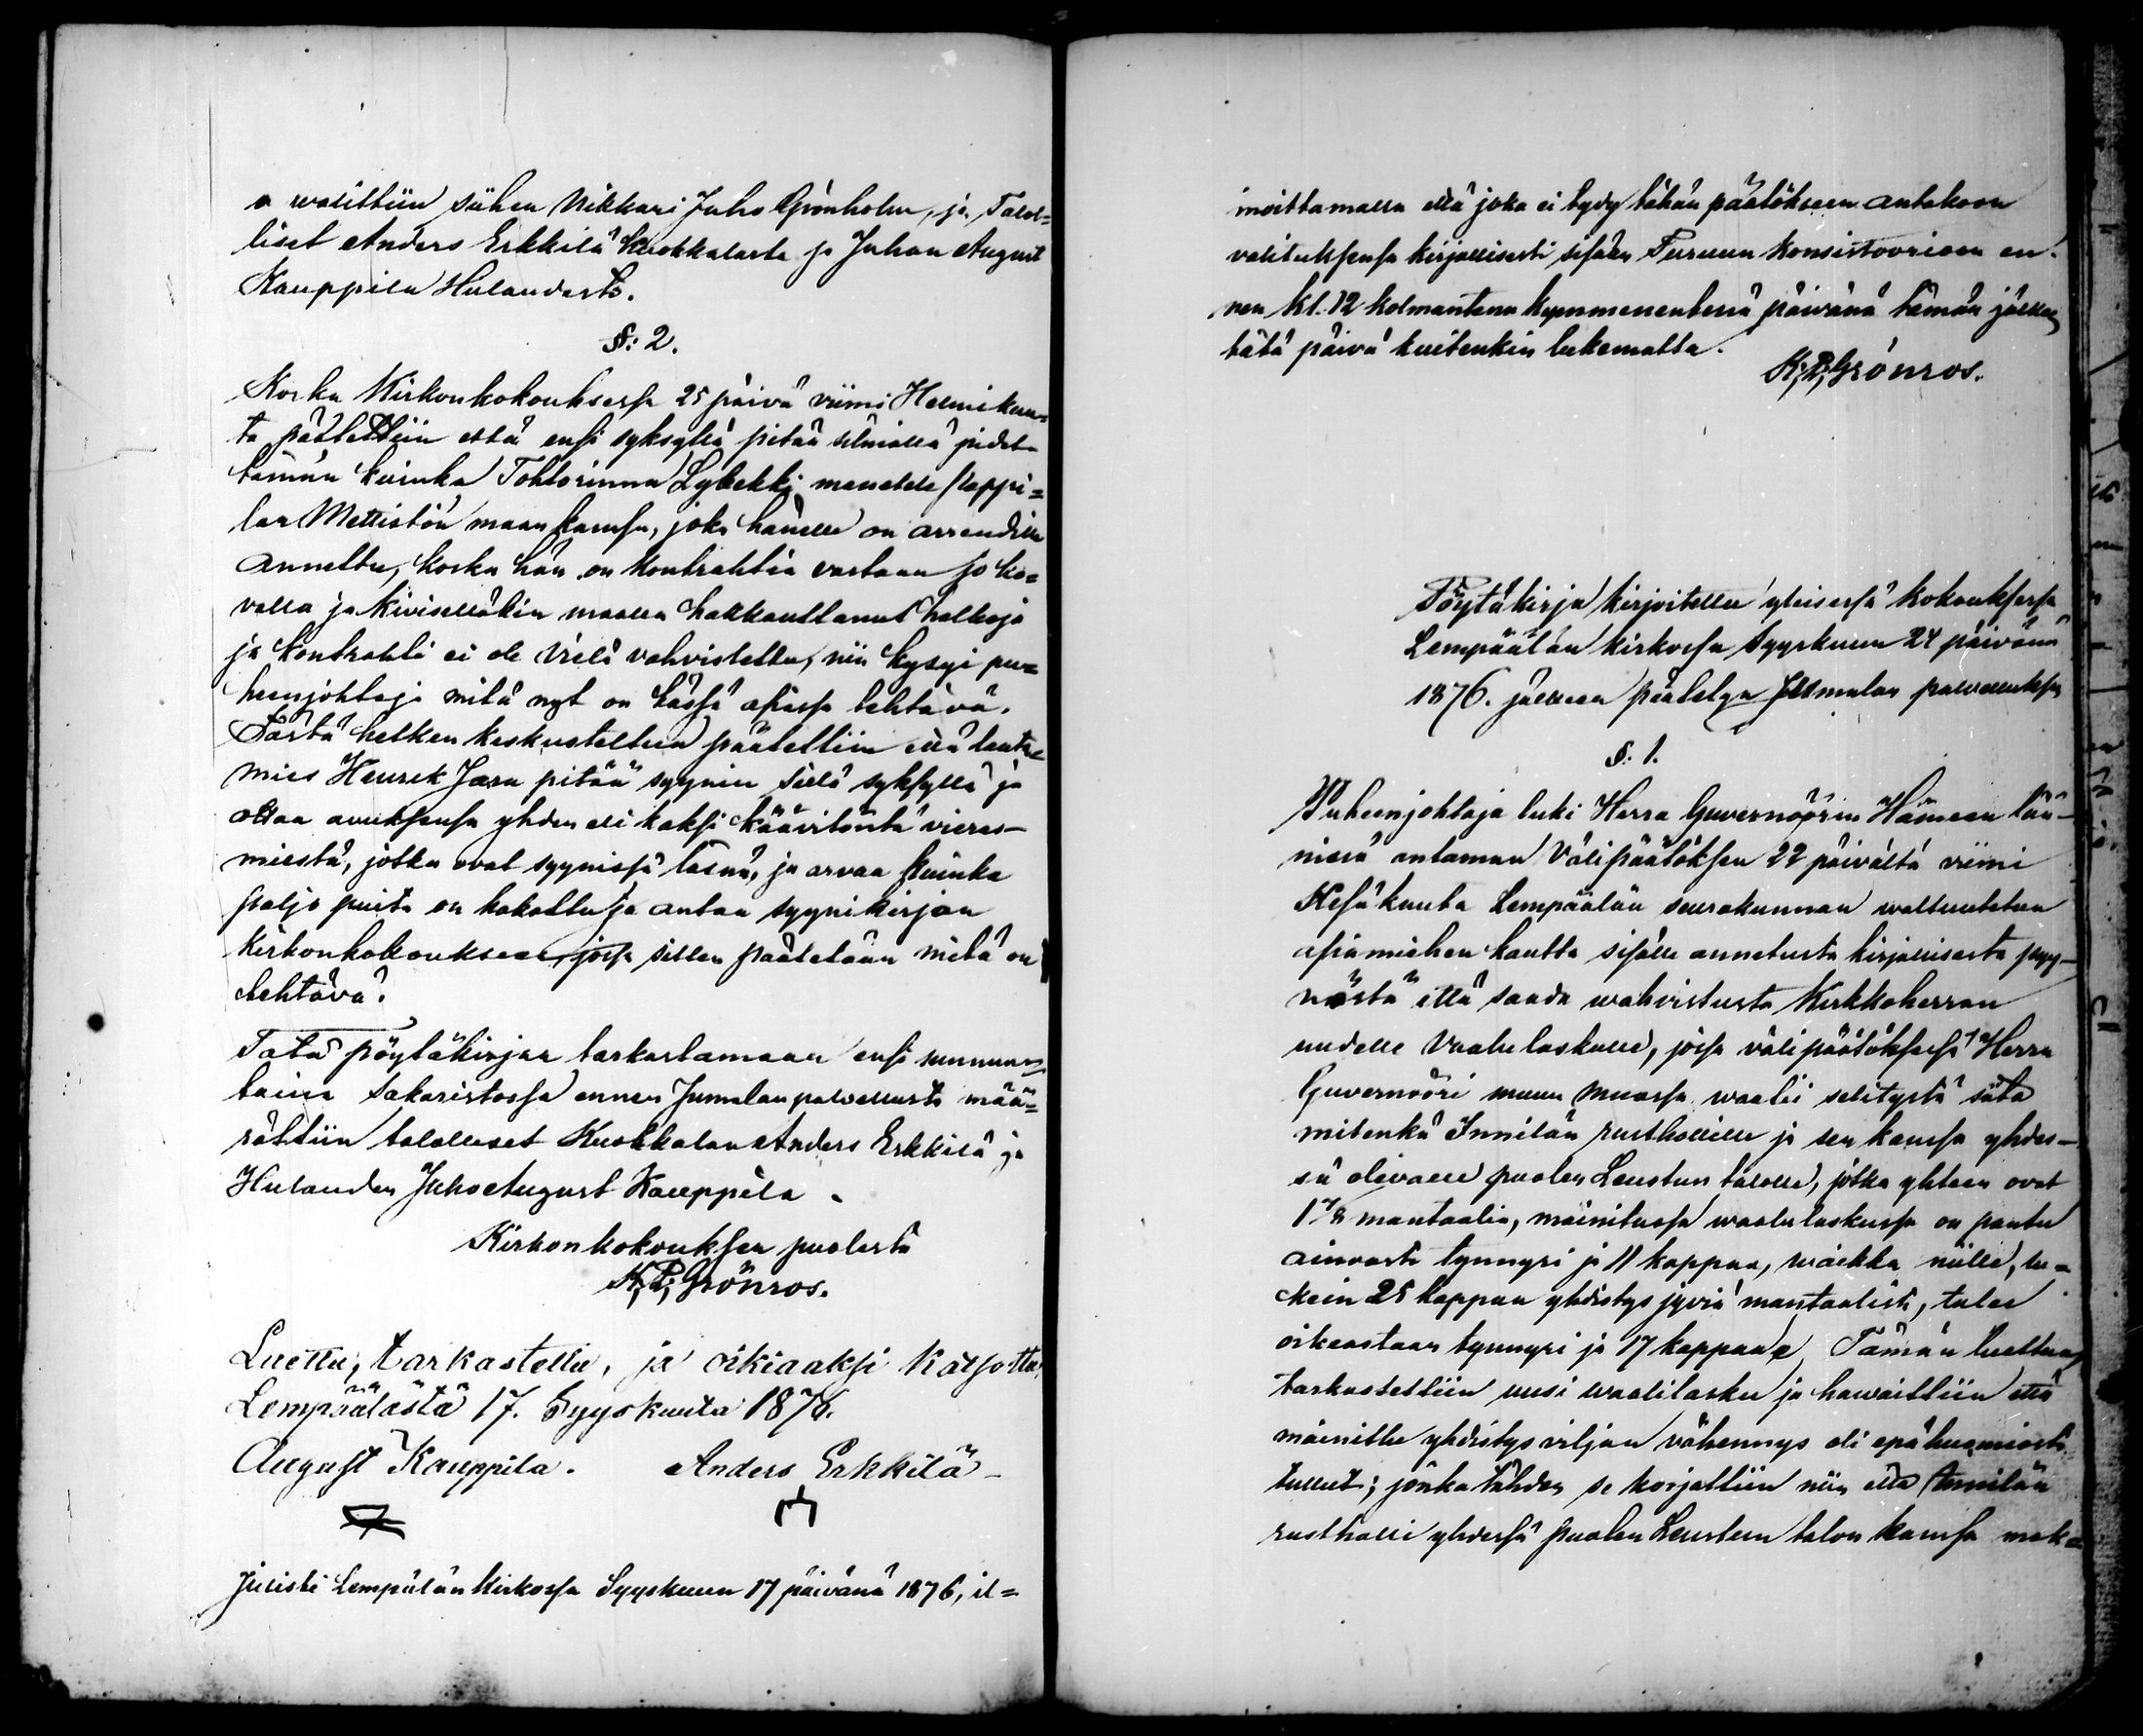 a walittiin siihen Nikkari Juho Grönholm, ja Talol=
liset Anders Erkkilä Kuokkalasta ja Juhan August
Kauppila Hulaudesta.
§: 2.
Koska Kirkonkokouksessa 25 päivä viimi Helmikuu=
ta päätettiin että ensi syksyllä pitää silmällä pidet-
tämän kuinka Tohtorinna Lybekki menettele Pappi=
lan Mettistön maan kanssa, joka hänelle on arrendille
annettu, koska hän on kontrahtia vastaan jo ko=
valla ja kiviselläkin maalla hakkauttanut halkoja
ja kontrahti ei ole vielä vahvistettu, niin kysyi pu=
heenjohtaja mitä nyt on tässä asiassa tehtävä.
Tästä hetken keskusteltua päätettiin että lauta=
mies Henrek Jara pitää syynin sillä syksyllä ja
ottaa avuksensa yhden eli kaksi käävitöntä vieras-
miestä, jotka ovat syynissä läsnä, ja arvaa kuinka
paljo puita on hakattu ja antaa syynikirjan
Kirkonkokoukseen, jossa sitten päätetään mitä on
tehtävä.
Tätä pöytäkirjaa tarkastamaan ensi sunnun=
taina Sakaristossa ennen Jumalanpalvellusta mää=
rättiin talolliset Kuokkalan Anders Erkkilä ja
Hulauden Juho August Kauppila.
Kirkonkokouksen puolesta
K. P. Grönros.
Luettu, tarkastettu, ja oikiaaksi katsottu,
Lempäälästä 17. Syyskuuta 1876.
August Kauppila. Anders Erkkilä
Julisti Lempälän Kirkossa Syyskuun 17 päivänä 1876, il=
moittamalla että joka ei tydy tähän päätökseen antakoon
valituksensa kirjallisesti sisälle Turuun Konsistoorioon en-
nen kl. 12 kolmantena kymmenentenä päivänä tämän jälkeen
tätä päivä kuitenkin lukematta.
K. P. Grönros.
Pöytäkirja kirjoitettu yleisessä kokouksessa
Lempäälän kirkossa Syyskuun 24 päivänä
1876. jälkeen päätetyn Jumalan palvelluksen
§. 1.
Puheenjohtaja luki Herra Guvernöörin Hämeen lää-
nissä antaman Välipäätöksen 22 päivältä viimi
Kesäkuuta Lempäälän seurakunnan waltuutetun
asiamiehen kautta sisälle annetusta kirjallisesta pyy-
nöstä että saada wahvistusta Kirkkoherran
uudelle Vaalulaskulle, jossa välipäätöksessä Herra
Guvernööri muun muassa waatii selitystä siitä
mitenkä Innilän rusthollille ja sen kanssa yhdes-
sä olevalle puolen Leustun talolle, jotka yhteen ovat
mantaalia, mainitussa waalulaskussa on pantu
ainoasti tynnyri ja 11 kappaa, waikka niille, lu=
kein 25 kappaa yhdistys jyviä mantaalista, tulee
oikeastaan tynnyri ja 17 kappaa. Tämän luettua,
tarkastettiin uusi waalilasku ja hawaittiin että
mainittu yhdistys viljan vähennys oli epähuomiosta
tullut; jonka tähden se korjattiin niin että Innilän
rustholli yhdessä puolen Leustun talon kanssa mak=